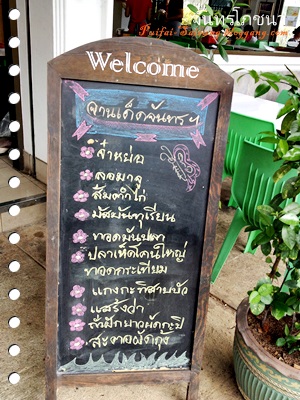 จันทรโภชนา
Welcome
จานเด็ดจันทรฯ
ลอมาจู
ส้มตำไก่
มัสมั่นทุเรียน
ทอดมันปลา
ปลาเห็ดโคนใหญ่
ทอดกระเทียม
แกงกะทิสายบัว
แสร้งว่า
ถั่วฝักยาวผัดกะปิ
สะตอผัดกุ้ง